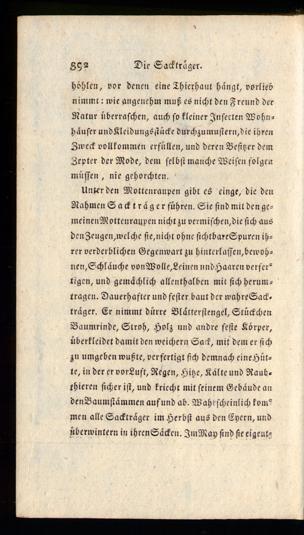 392 Die Sackträger.
höhlen, vor denen eine Thierhaut hängt, vorlieb
nimmt: wie angenehm muß es nicht den Freund der
Natur überraschen, auch so kleiner Insecten Wohn-
häuser und Kleidungsstücke durchzumustern, die ihren
Zweck vollkommen erfüllen, und deren Besitzer dem
Zepter der Mode, dem selbst manche Weisen folgen
müssen, nie gehorchten.
Unter den Mottenraupen gibt es einge, die den
Nahmen Sackträger führen. Sie sind mit den ge-
meinen Mottenraupen nicht zu vermischen, die sich aus
den Zeugen, welche sie, nicht ohne sichtbare Spuren ih-
rer verderblichen Gegenwart zu hinterlassen, bewoh-
nen, Schläuche von Wolle, Leinen und Haaren verfer-
tigen, und gemächlich allenthalben mit sich herum-
tragen. Dauerhafter und fester baut der wahre Sack-
träger. Er nimmt dürre Blätterstengel, Stückchen
Baumrinde, Stroh, Holz und andre feste Körper,
überkleidet damit den weichern Sack, mit dem er sich
zu umgeben wußte, verfertigt sich demnach eine Hüt-
te, in der er vor Luft, Regen, Hitze, Kälte und Raub-
thieren sicher ist, und kriecht mit seinem Gebäude an
den Baumstämmen auf und ab. Wahrscheinlich kom-
men alle Sackträger im Herbst aus den Eyern, und
überwintern in ihren Säcken. Im May sind sie eigent-